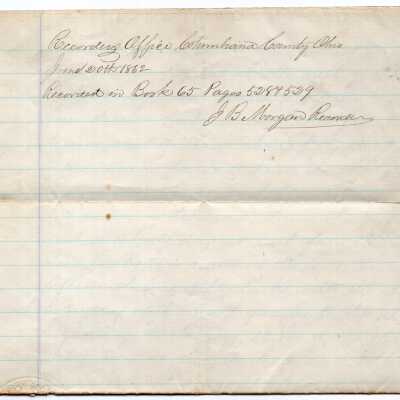 Recording Office Columbiana County Ohio
June 20th 1862
Recorded in Book 65 Pages 528 & 529
J B Morgan Recorder